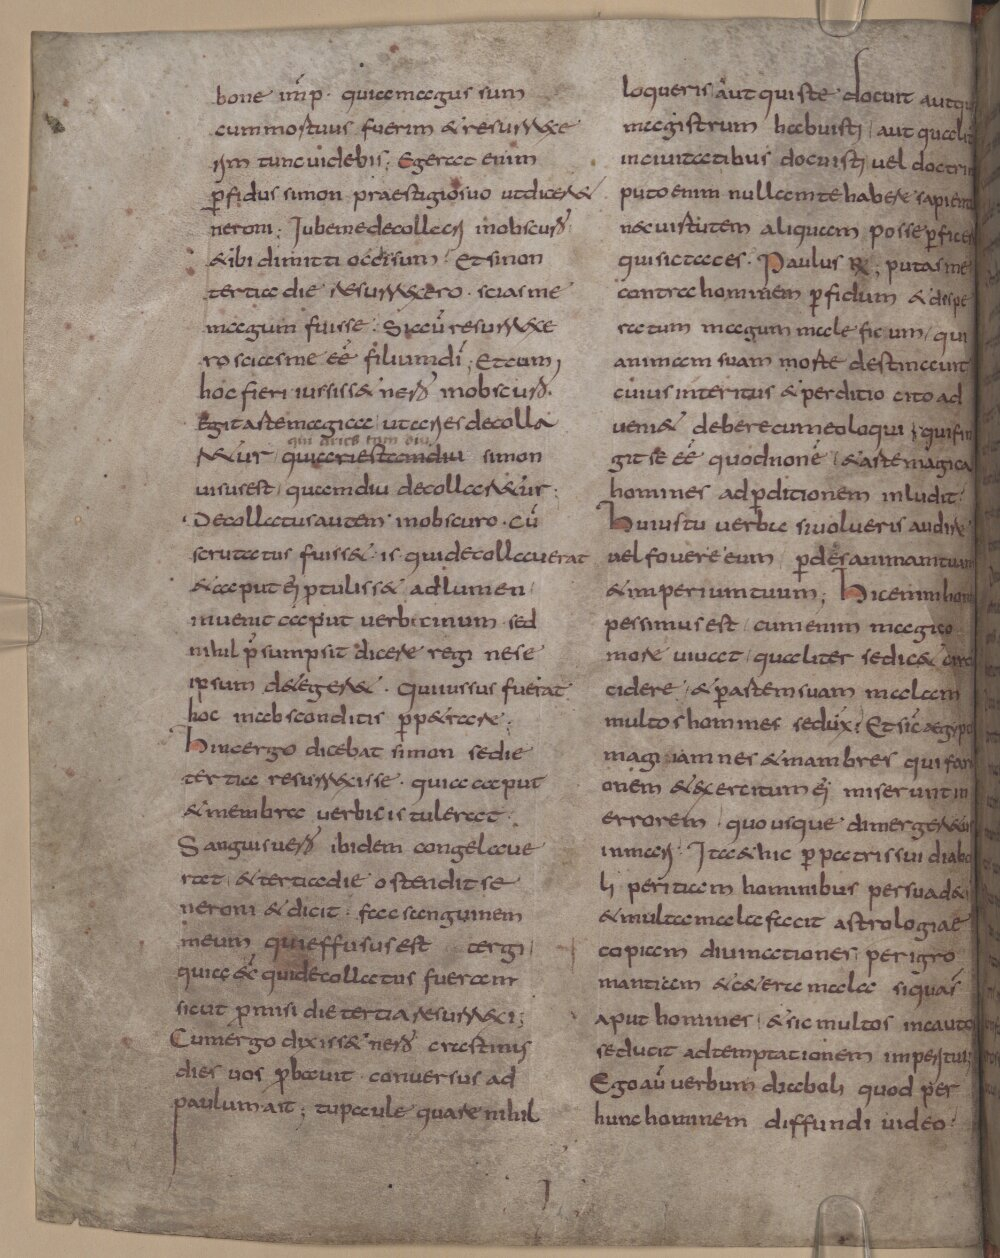 bone imp̄· quia magus sum
cum mortuus fuerim & resurrexe
rim tunc uidebis; Egerat enim
ꝑfidus simon praestigio suo ut dicer&
neroni; Jube me decollari in obscuro
& ibi dimitti occisum· Et si non
tertia die resurrexero· scias me
magum fuisse· Si aū resurrexe
ro scias me eē filium dī; Et cum
hoc fieri iussiss& nero in obscuro·
Egit arte magica ut aries decolla
r&ur quia aries tam diu simon
qui aries tam diu
uisus est quam diu decollar&ur;
Decollatus autem in obscuro· Cū
scrutatus fuiss& is qui decollauerat
& caput ei ꝓtuliss& ad lumen
inuenit caput uerbicinum sed
nihil p̄sumpsit dicere regi ne se
ipsum d&eger&· Qui iussus fuerat
hoc in absconditis ꝑp&rare;
Hinc ergo dicebat simon se die
tertia resurrexisse· quia caput
& membra uerbicis tulerat·
Sanguis uero ibidem congelaue
rat & tertia die ostendit se
neroni & dicit· fac sanguinem
meum qui effusus est tergi
quia ecce qui decollatus fueram
sicut ꝓmisi die tertia resurrexi;
Cum ergo dixiss& nero crastinus
dies uos ꝓbauit conuersus ad
paulum ait; tu paule quare nihil
loqueris aut quis te docuit aut qu
magistrum habuisti aut qualit
in ciuitatibus docuisti uel doctrin
puto enim nullam te habere sapient
nec uirtutem aliquam posse ꝑficer
qui sic taces· Paulus R̄; putas me
contra hominem ꝑfidum & despe
ratum magum maleficum qui
animam suam morte destinauit
cuius interitus & perditio cito ad
ueni& debere cum eo loqui qui fin
git se eē quod non ē & arte magica
homines ad ꝑditionem inludit·
Huius tu uerba si uolueris audire
uel fouere eum ꝑdes animam tuam
& imperium tuum; Hic enim hom
pessimus est cum enim magico
more uiuat qualiter se dic& circ
cidere & ꝑ artem suam malam
multos homines seduxit· Et sic aegypt
magi iamnes & mambres qui far
onem & exercitum ei miserunt in
errorem quo usque dimerger&ur
in mari· Ita & hic ꝑ patris sui diabo
li peritiam hominibus persuad&
& multa mala facit astrologiae
copiam diuinationes per igro
mantiam & c&era mala siquas
aput homines & sic multos incauto
seducit ad temptationem imperii tui;
Ego aū uerbum diaboli quod per
hunc hominem diffundi uideo·